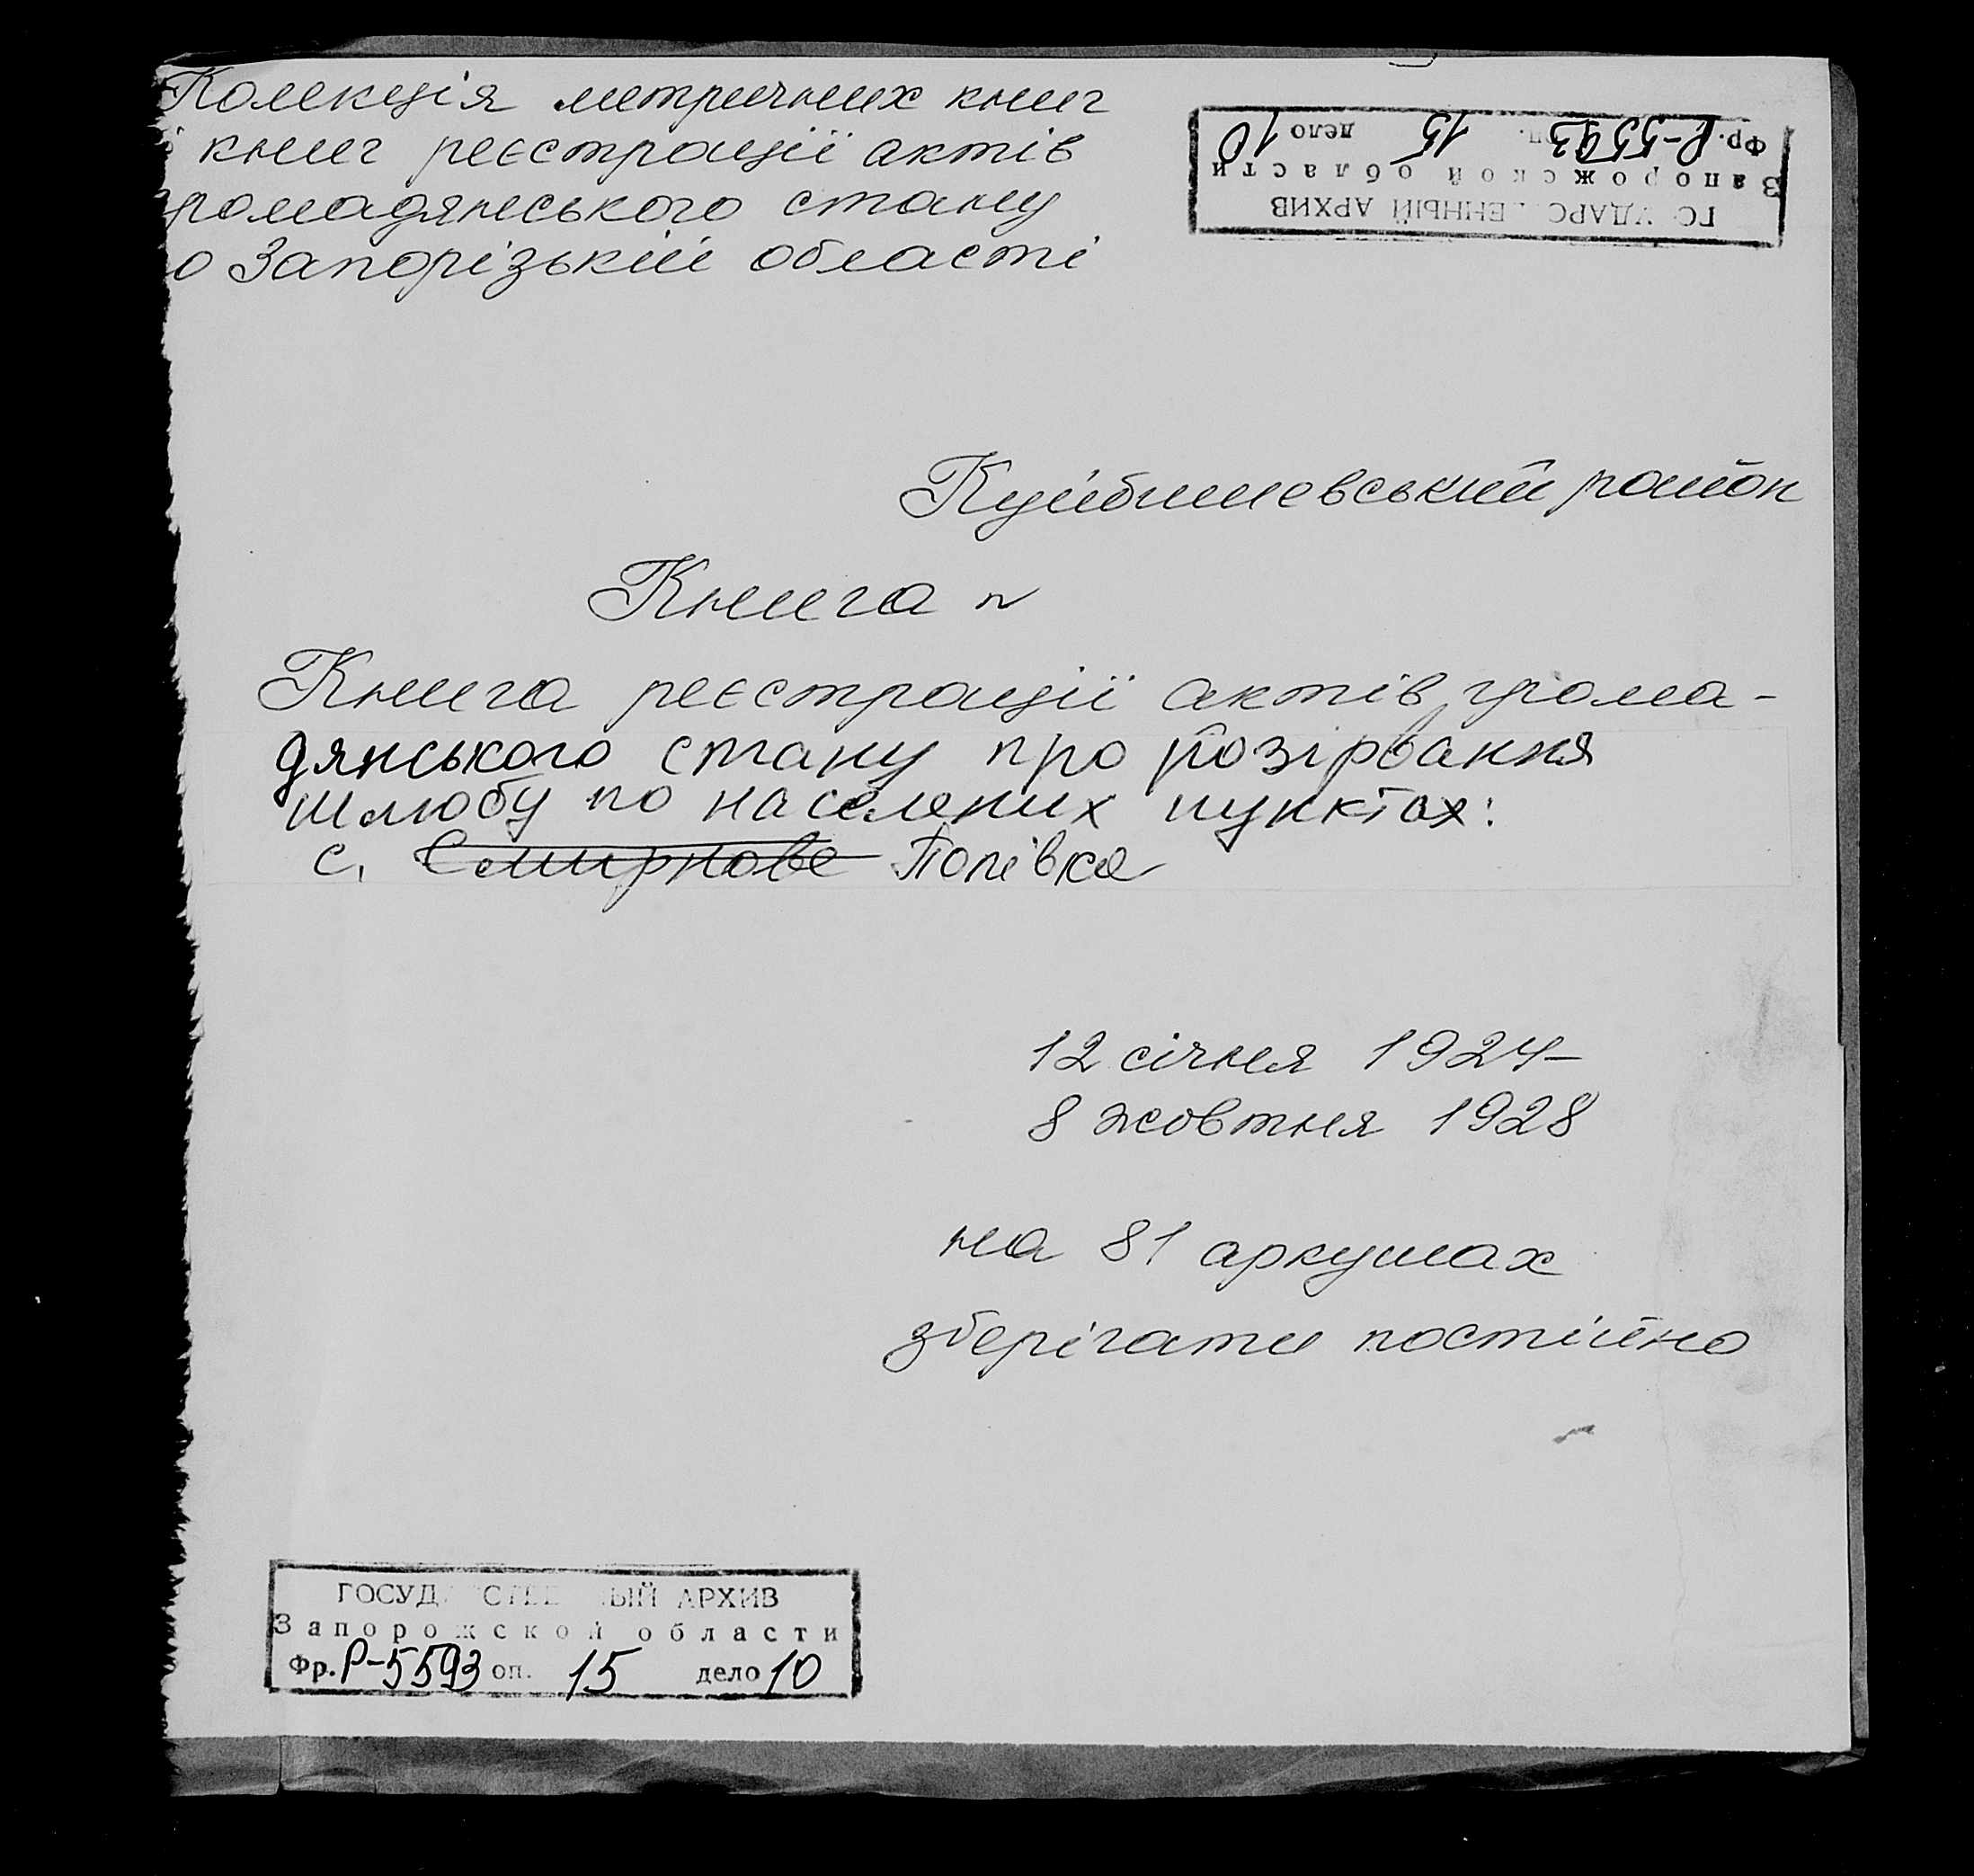 Колекція метричних книг
і книг реєстрації актів
ромадянського стану
о Запорізькій області
ГОСУДАРСТВЕННЫЙ АРХИВ
Запорожской области
Фр. Р-5593 оп. 15 дело 10
Куйбишевський район
Книга №
Книга реєстрації актів грома-
дянського стану про розірвання
шлюбу по населених пунктах:
с. Смирнове Попівка
12 січня 1924–
8 жовтня 1928
на 81 аркушах
зберігати постійно
ГОСУДАРСТВЕННЫЙ АРХИВ
Запорожской области
Фр. Р-5593 оп. 15 дело 10